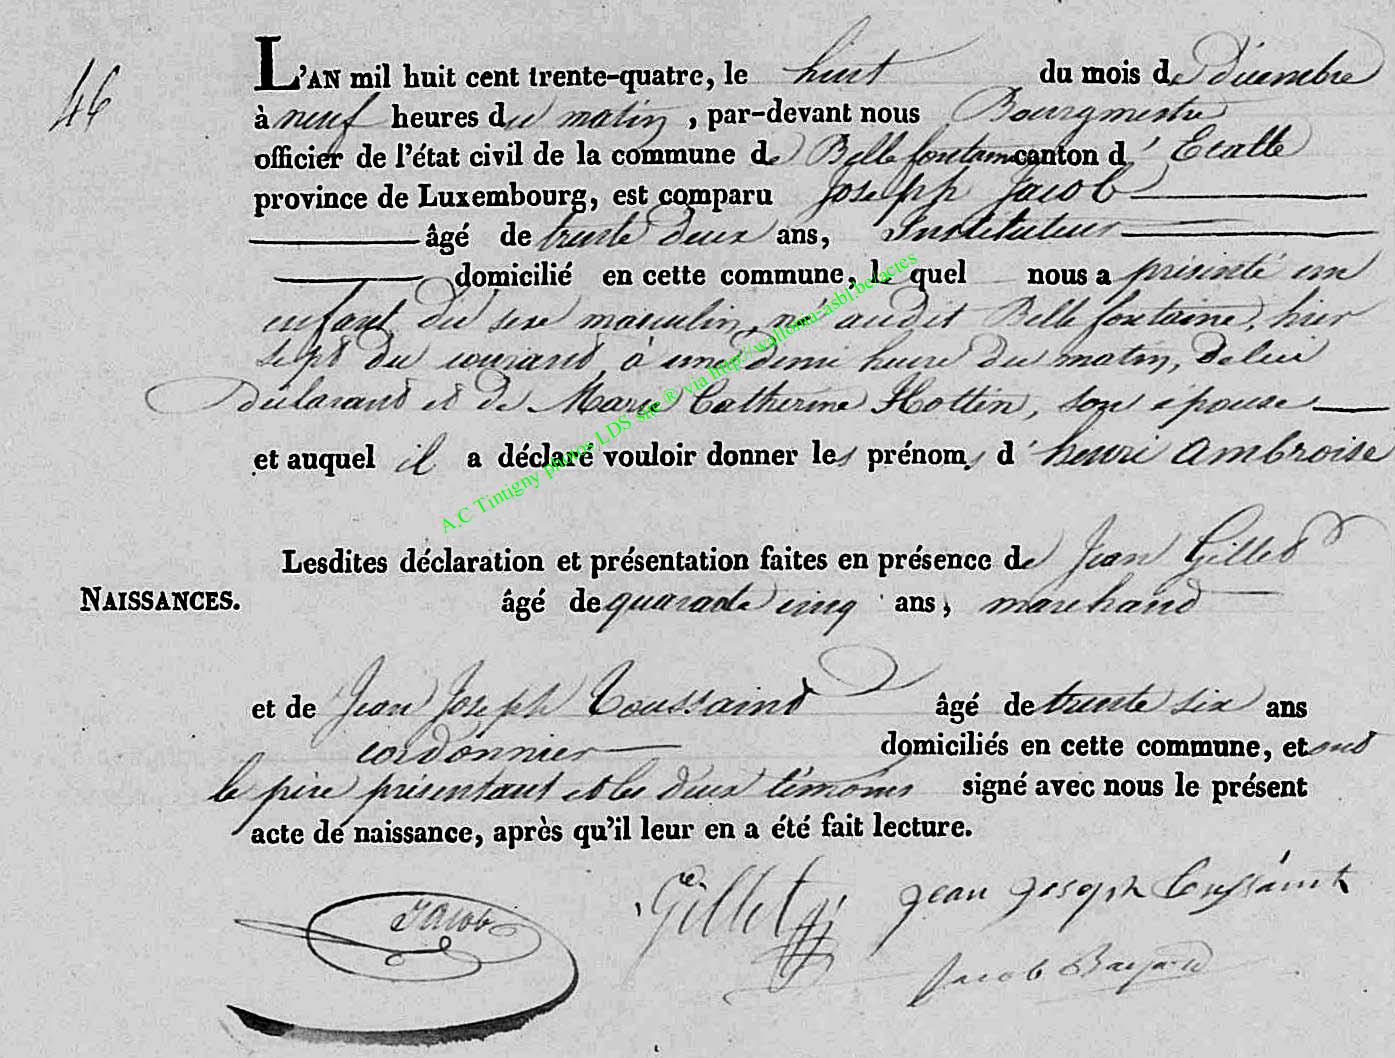 46
L'AN mil huit cent trente-quatre, le huit du mois de décembre
à neuf heures du matin, par-devant nous Bourgmestre
officier de l'état civil de la commune de Bellefontaine canton d'Etalle
province de Luxembourg, est comparu Joseph Jacob
âgé de trente deux ans, Instituteur
domicilié en cette commune, le quel nous a présenté un
enfant du sexe masculin, né audit Bellefontaine, hier
sept du courant, à une demi heure du matin, de lui
déclarant et de Marie Catherine Hottin, son épouse
et auquel il a déclaré vouloir donner les prénoms d'henri ambroise
Lesdites déclaration et présentation faites en présence de Jean Gillet
NAISSANCES.
âgé de quarante cinq ans, marchand
et de Jean Joseph Toussaint âgé de trente six ans
cordonnier domiciliés en cette commune, et ont
le père présentant et les deux témoins signé avec nous le présent
acte de naissance, après qu'il leur en a été fait lecture.
Jacob Gillet jean joseph toussaint
Jacob
A.C Tintigny photos LDS site ® via http://wallonia-asbl.be/actes